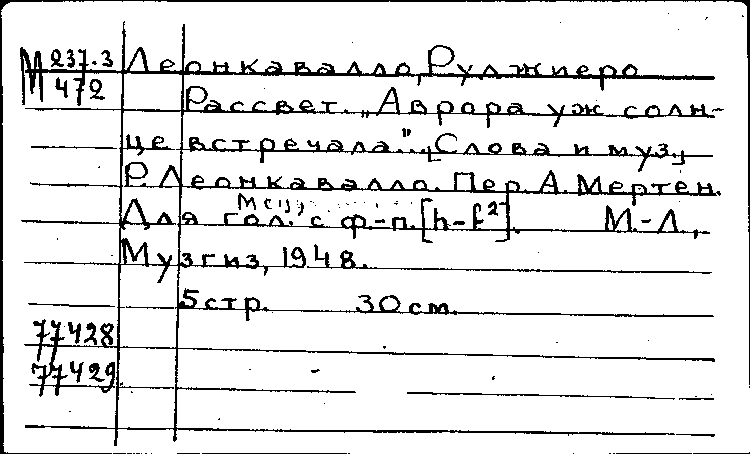 М 237.3
472
Леонкавалло, Рулжиеро
Рассвет. „Аврора уж солн-
це встречала". [Слова и муз.]
Р. Леонкавалло. Пер. А. Мертен.
Для гол. с ф.-п. [h-f²]. М.-Л.,
Музгиз, 1948.
5 стр. 30 см.
77428
77429